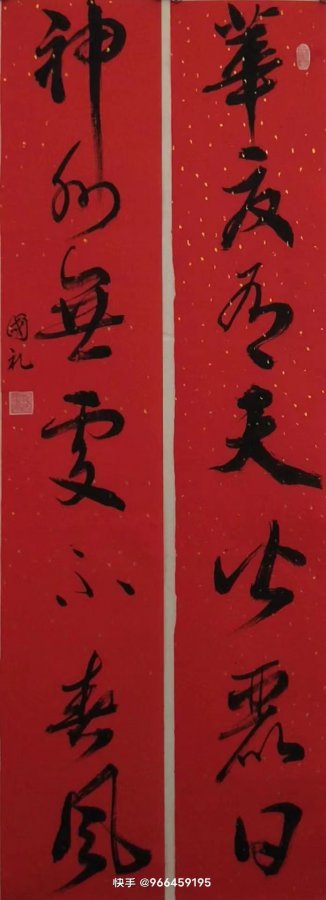 華夏有天皆麗日
神州無處不春風
國礼
快手 @966459195